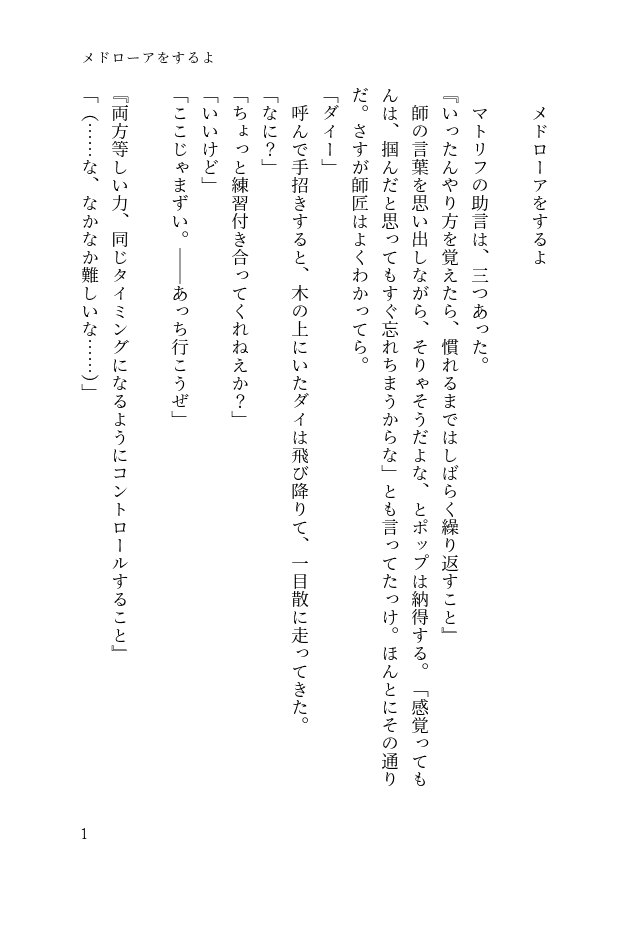 メドローアをするよ
メドローアをするよ
マトリフの助言は、三つあった。
『いったんやり方を覚えたら、慣れるまではしばらく繰り返すこと』
師の言葉を思い出しながら、そりゃそうだよな、とポップは納得する。「感覚っても
んは、掴んだと思ってもすぐ忘れちまうからな」とも言ってたっけ。ほんとにその通り
だ。さすが師匠はよくわかってら。
「ダイー」
呼んで手招きすると、木の上にいたダイは飛び降りて、一目散に走ってきた。
「なに？」
「ちょっと練習付き合ってくれねえか？」
「いいけど」
「ここじゃまずい。――あっち行こうぜ」
『両方等しい力、同じタイミングになるようにコントロールすること』
「（……な、なかなか難しいな……）」
1